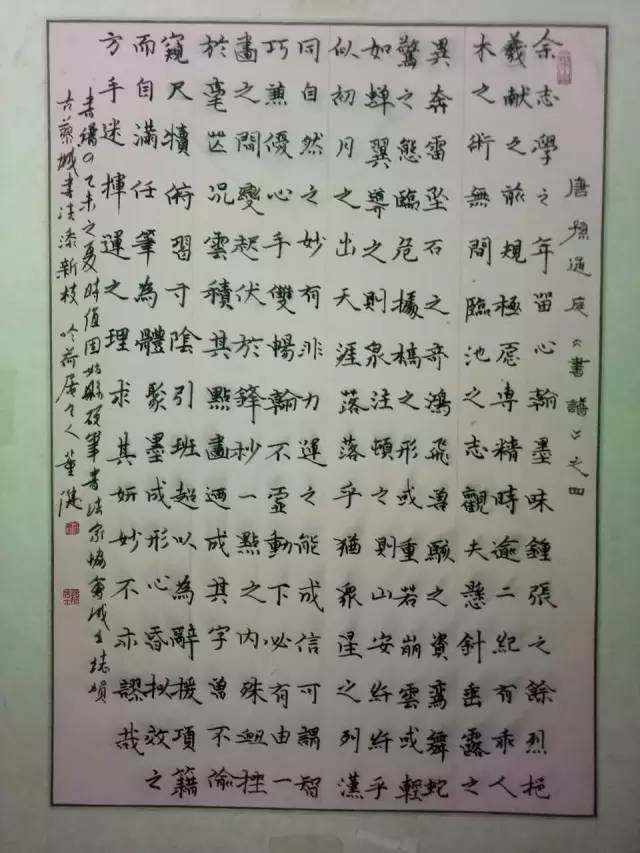 唐孫過庭《書譜》之四
余志學之年留心翰墨味鍾張之餘烈挹
羲獻之前規極慮專精時逾二紀有乖入
木之術無間臨池之志觀夫懸針垂露之
異奔雷墜石之奇鴻飛獸駭之資鸞舞蛇
驚之態臨危據槁之形或重若崩雲或輕
如蟬翼導之則泉注頓之則山安纤纤乎
似初月之出天涯落落乎猶眾星之列漢
同自然之妙有非力運之能成信可謂智
巧兼優心手雙暢翰不虛動下必有由一
畫之間變起伏於鋒杪一點之內殊衄挫
於毫芒況雲積其點畫迺成其字曾不傍
窺尺牘俯習寸陰引班超以為辭援項籍
而自滿任筆為體聚墨成形心昏擬效之
方手迷揮運之理求其妍妙不亦謬哉
乙未之夏時值固始縣硬筆書法家協會成立誌
古蓼城書法添新枝 吟荷居主人 董